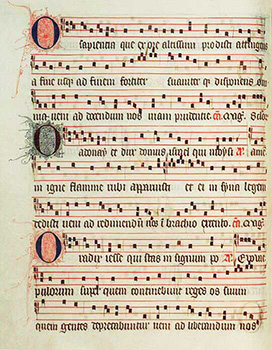 O sapientia que ex ore altissimi prodisti attingens
a fine usq; ad finem fortiter suaviter q; disponens
nia veni ad docendum nos viam prudentie
O Adonay et dux domus israel qui
in igne flamme rubi apparuisti et ei in syna legem
dedisti veni ad redimendum nos i brachio extento
O radix iesse qui stas in signum po
pulorum super quem continebunt reges os suum
quem gentes deprecabuntur veni ad liberandum nos